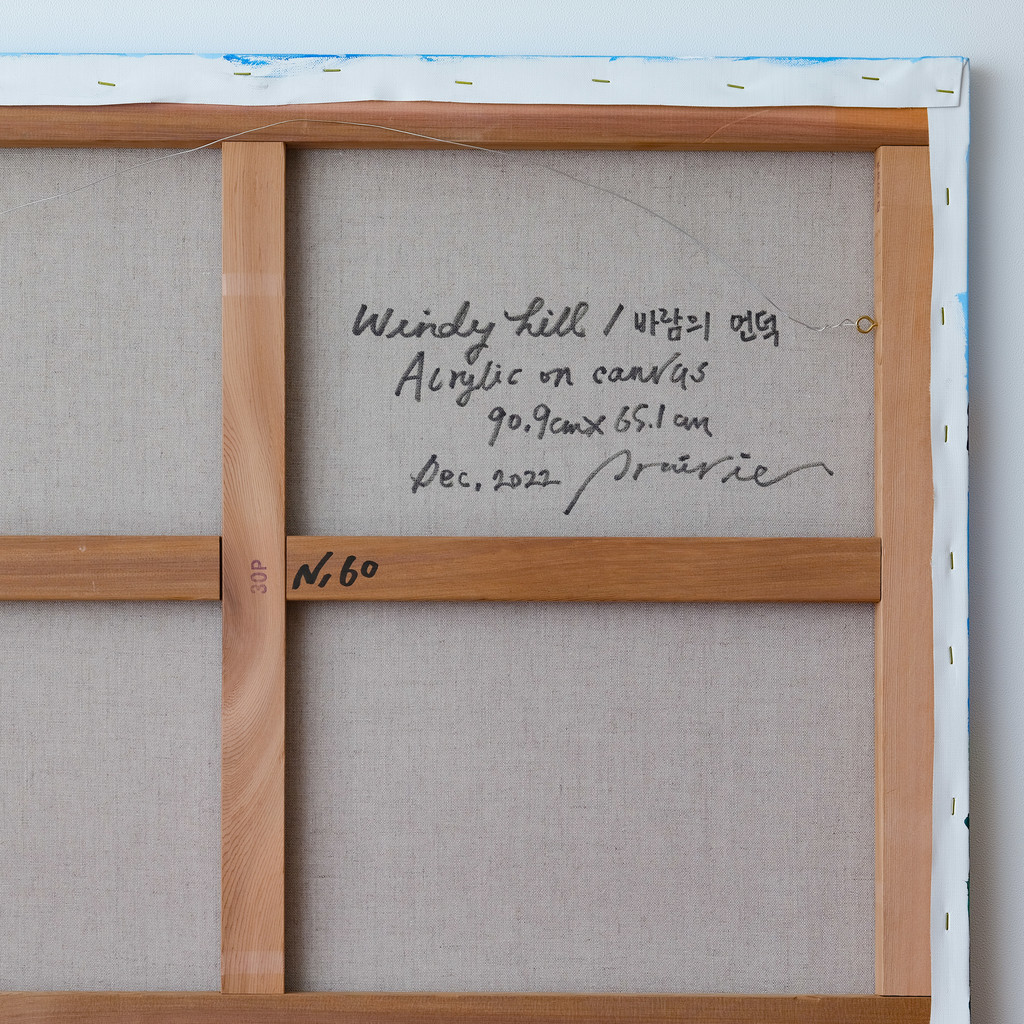 Windy hill / 바람의 언덕
Acrylic on canvas
90.9cm x 65.1 cm
Dec. 2022 prairie
30P
N, 60